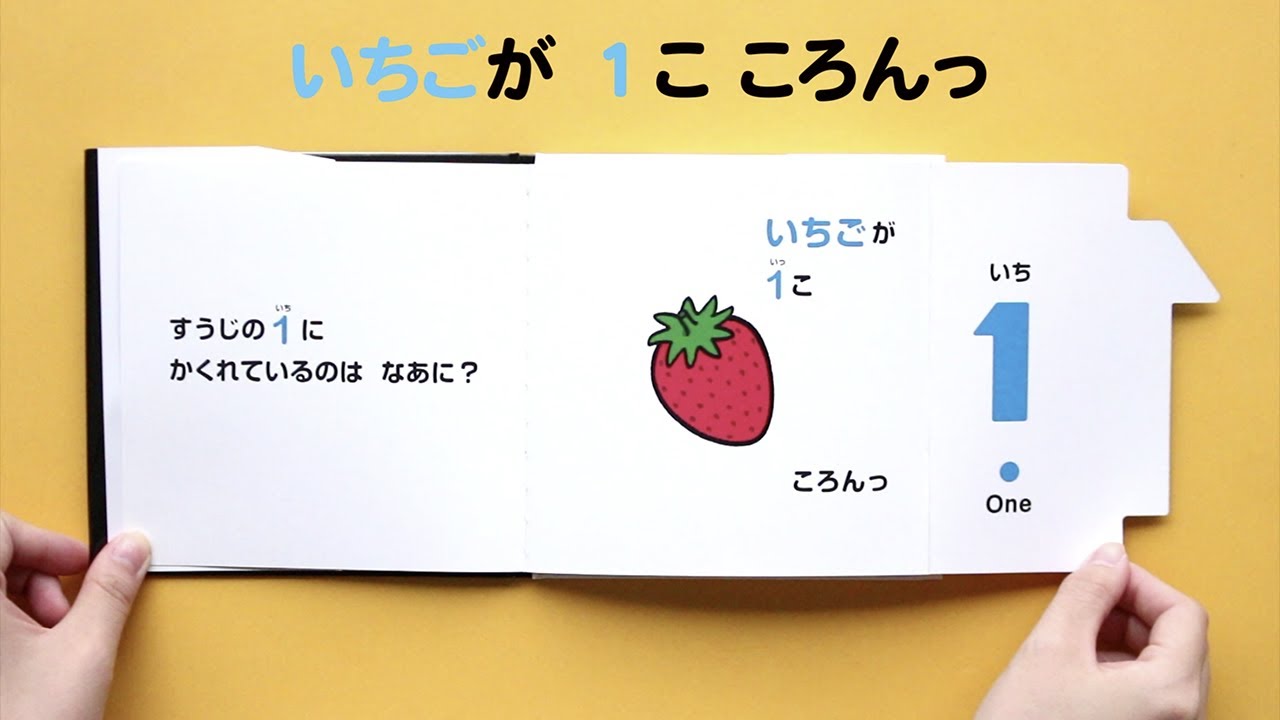 いちごが 1こ ころんっ
すうじの 1 に
いち
かくれているのは なあに？
いちごが
いっ
1こ
ころんっ
いち
1
One